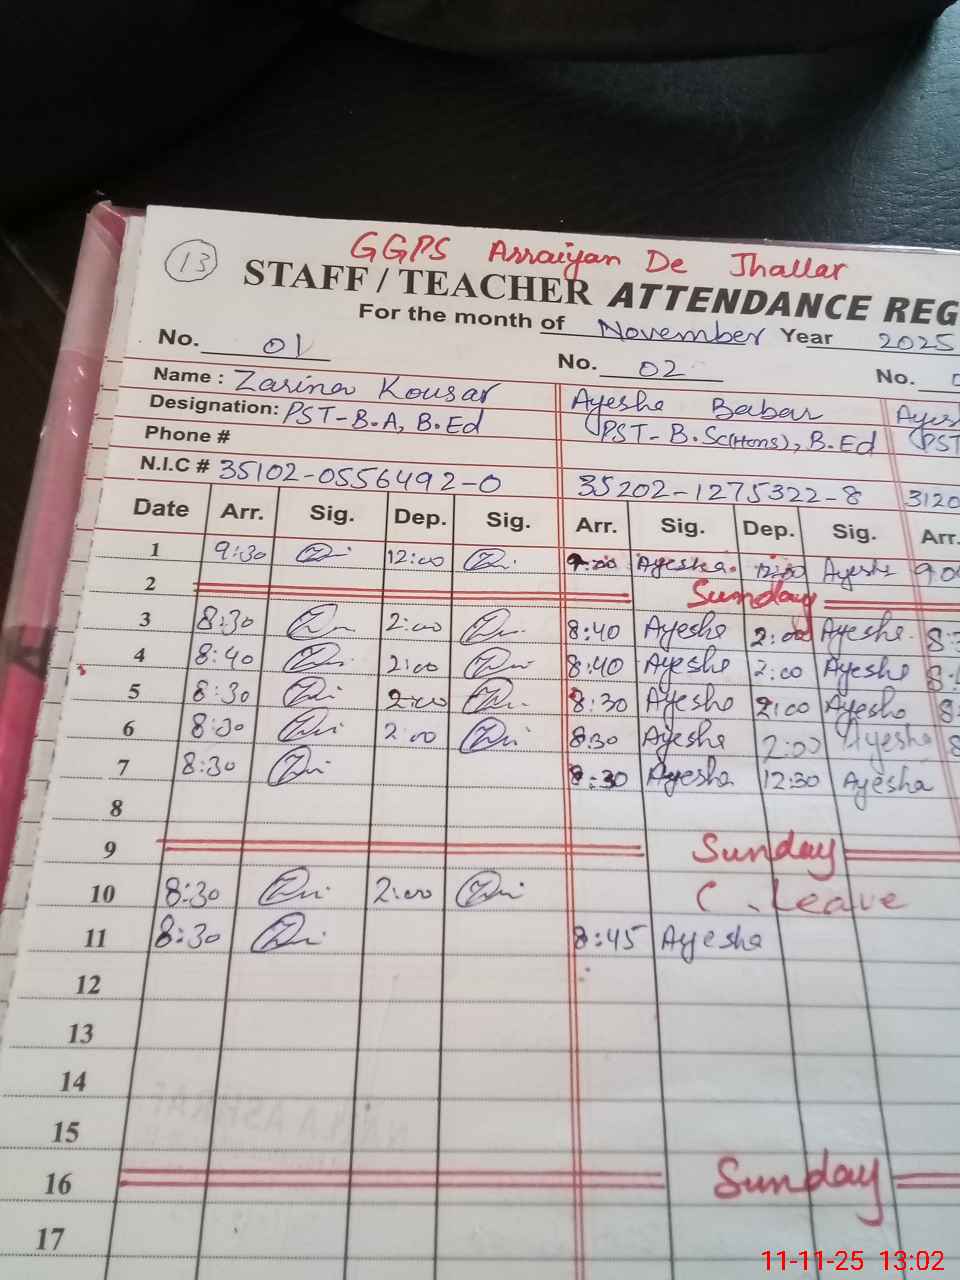 13
GGPS Arraiyan De Jhallar
STAFF / TEACHER ATTENDANCE REG
For the month of November Year 2025
No. 01 No. 02 No.
Name : Zarina Kousar Ayesha Babar Ayes
Designation: PST-B.A, B.Ed PST- B.Sc(Hons), B.Ed PST
Phone #
N.I.C # 35102-0556492-0 35202-1275322-8 3120
Date Arr. Sig. Dep. Sig. Arr. Sig. Dep. Sig. Arr.
1 9:30 12:00 9:00 Ayesha. 12:00 Ayesha 9:0
2 Sunday
3 8:30 2:00 8:40 Ayesha 2:00 Ayesha. 8:3
4 8:40 2:00 8:40 Ayesha 2:00 Ayesha 8:
5 8:30 2:00 8:30 Ayesha 2:00 Ayesha 8:
6 8:30 2:00 8:30 Ayesha 2:00 Ayesha 8
7 8:30 8:30 Ayesha 12:30 Ayesha
8
9 Sunday
10 8:30 2:00 C. Leave
11 8:30 8:45 Ayesha
12
13
14
15
16 Sunday
17
11-11-25 13:02